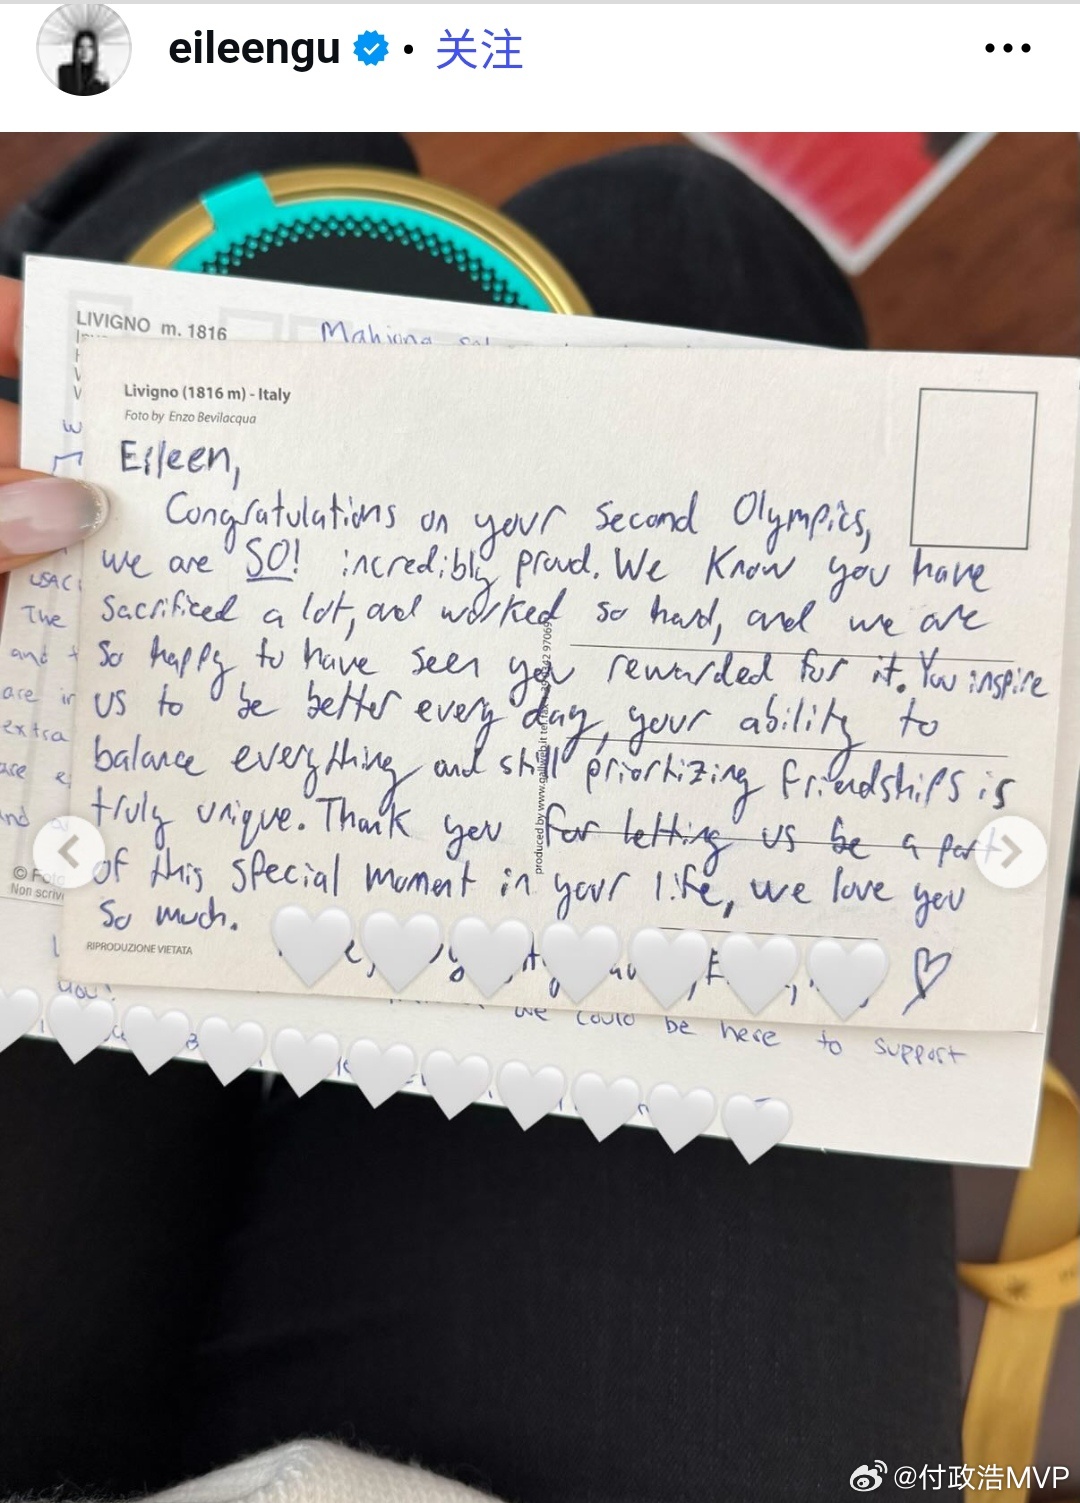 eileengu • 关注
LIVIGNO m. 1816
Mahjong
Livigno (1816 m) - Italy
Foto by Enzo Bevilacqua
Eileen,
Congratulations on your second Olympics,
we are SO! incredibly proud. We know you have
sacrificed a lot, and worked so hard, and we are
so happy to have seen you rewarded for it. You inspire
us to be better every day, your ability to
balance everything and still prioritizing friendships is
truly unique. Thank you for letting us be a part
of this special moment in your life, we love you
so much.
RIPRODUZIONE VIETATA
produced by www.gallweb.it tel
The
and
are
extra
are
and
© Foto
Non scriv
you!
we could be here to support
@付政浩MVP